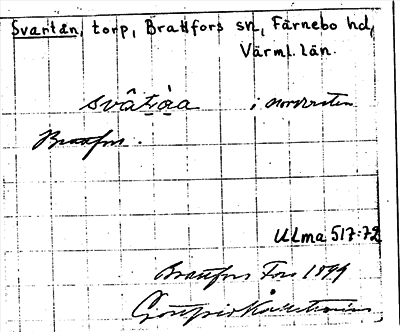 Svartån, torp, Brattfors sn, Färnebo hd,
Värml. län.
svātáa i nordvästra
Brattfors.
ULma 517:72
Brattfors Fors 1899
Gottfrid Kallstenius